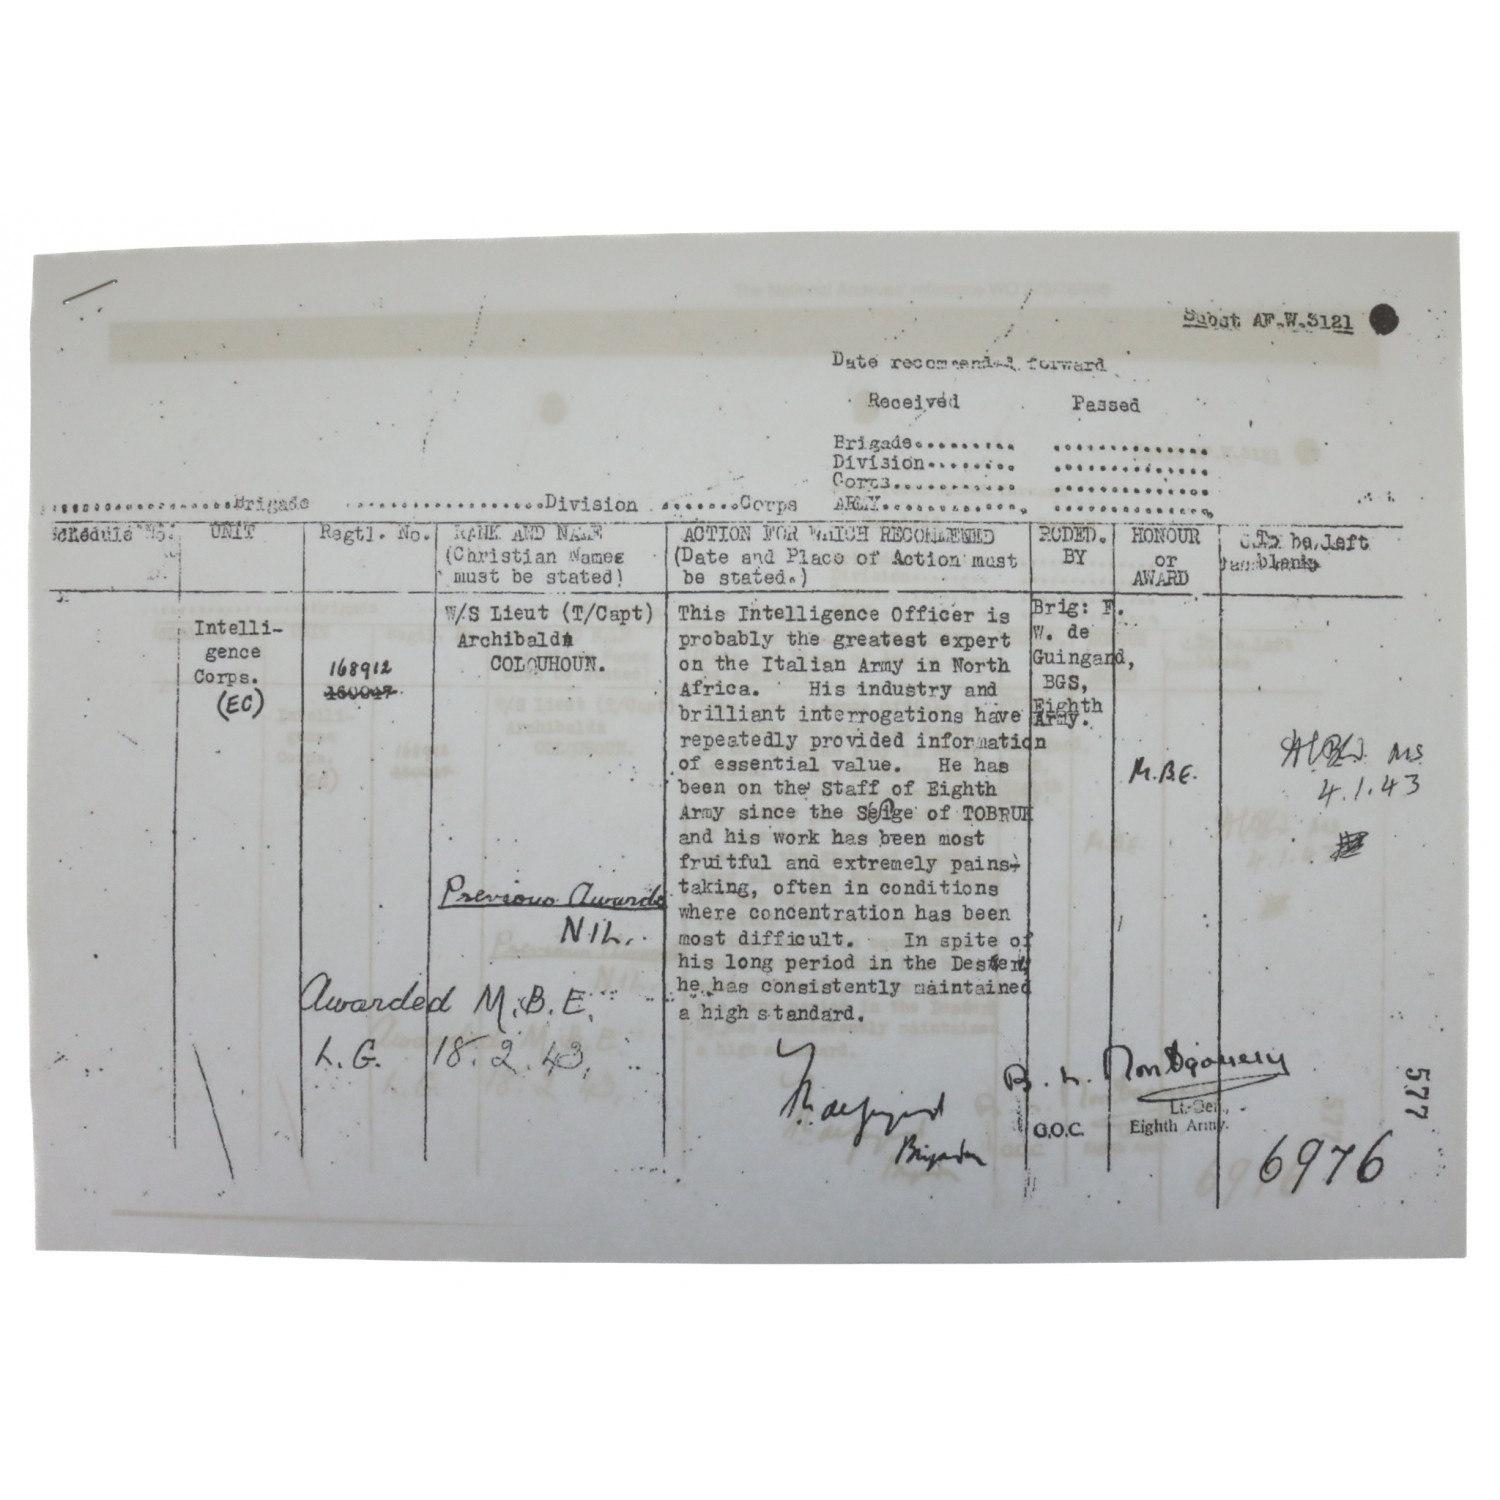 Subst AF.W.3121
Date recommended forward
Received Passed
Brigade..........
Division.........
Corps............
ARMY................
Brigade Division Corps
Schedule No. UNIT Regtl. No. RANK AND NAME ACTION FOR WHICH RECOMMENDED RCDED. HONOUR To be left
(Christian Names (Date and Place of Action must BY or blank
must be stated) be stated.) AWARD
Intelli-
gence
Corps.
(EC)
168912
W/S Lieut (T/Capt)
Archibald
COLQUHOUN.
Previous Awards
NIL.
This Intelligence Officer is
probably the greatest expert
on the Italian Army in North
Africa. His industry and
brilliant interrogations have
repeatedly provided information
of essential value. He has
been on the Staff of Eighth
Army since the Seige of TOBRUK
and his work has been most
fruitful and extremely pains-
taking, often in conditions
where concentration has been
most difficult. In spite of
his long period in the Desert,
he has consistently maintained
a high standard.
Brig: F.
W. de
Guingand,
BGS,
Eighth
Army.
M.B.E.
MS
4.1.43
Awarded M.B.E.
L.G. 18.2.43.
de Guingand
Brigadier
B. L. Montgomery
Lt.-Gen.,
G.O.C. Eighth Army.
577
6976